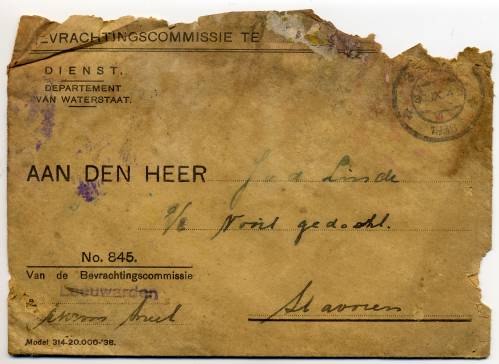 EVRACHTINGSCOMMISSIE TE
DIENST.
DEPARTEMENT
VAN WATERSTAAT.
AAN DEN HEER J v d Linde
Nooit gedacht.
No. 845.
Van de Bevrachtingscommissie
Leeuwarden
Stavoren
Model 314-20.000-'38.